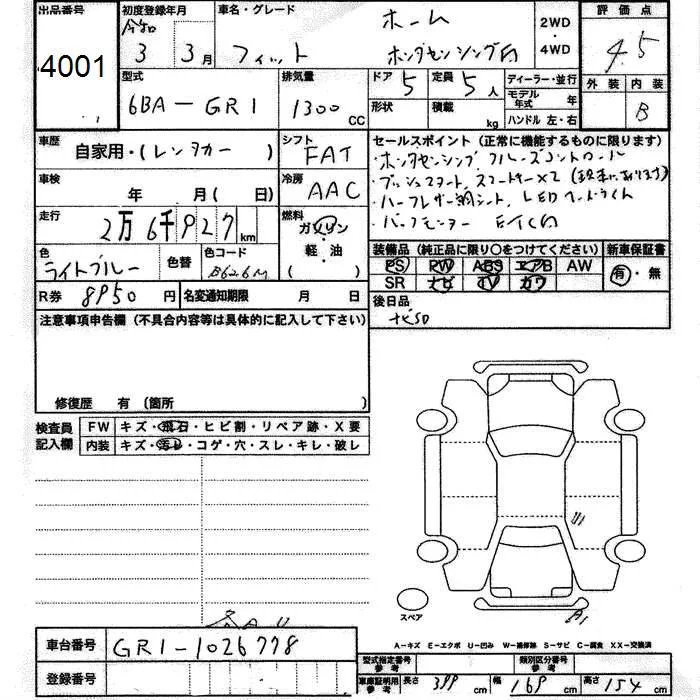 出品番号 初度登録年月 車名・グレード 評価点
4001 令和 3 3月 フィット ホーム ホンダセンシング付 2WD・4WD 4.5
型式 6BA-GR1 排気量 1300cc ドア 5 定員 5人 ディーラー・並行 外装 内装
形状 積載 kg モデル年式 年 B
ハンドル 左・右
車歴 自家用・(レンタカー) シフト FAT セールスポイント(正常に機能するものに限ります)
・ホンダセンシング クルーズコントロール
車検 年 月(日) 冷房 AAC ・プッシュスタート スマートキー×2
・ハーフレザー調シート、LEDヘッドライト
走行 2万6千927km 燃料 ガソリン ・バックモニター ETC付
軽・油
( )
色 ライトブルー 色替 色コード B626M 装備品(純正品に限り○をつけてください) 新車保証書
PS PW ABS エアB AW 有・無
R券 8950円 名変通知期限 月 日 SR ナビ TV カワ
注意事項申告欄(不具合内容等は具体的に記入して下さい) 後日品
ナビSD
修復歴 有(箇所
検査員記入欄 FW キズ・飛石・ヒビ割・リペア跡・X要
内装 キズ・汚レ・コゲ・穴・スレ・キレ・破レ
スペア
A1
A-キズ E-エクボ U-凹み W-補修跡 S-サビ C-腐食 XX-交換済
車台番号 GR1-1026778
型式指定番号 参考 類別区分番号 参考
登録番号 車庫証明用参考 長さ 399cm 幅 169cm 高さ 154cm